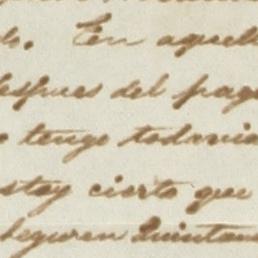 do. En aquell
despues del pag
o tengo todavia
estoy cierto que
seguren Quintan